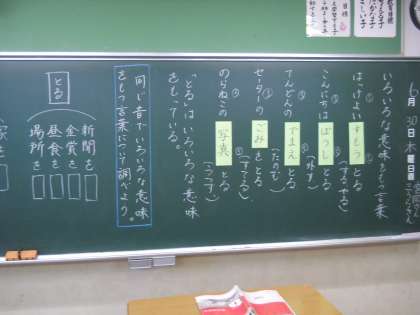 6月30日木曜日直
いろいろな意味をもつ言葉
はっけよい すもう とる
こんにちは ぼうし とる
てんどんの でまえ とる (たのむ)
セーターの ごみ をとる (すてる)
のらねこの 写真 とる (うつす)
「とる」はいろいろな意味
をもっている。
同じ音でいろいろな意味
をもつ言葉について調べよう。
とる
新聞を
金賞を
昼食を
場所を